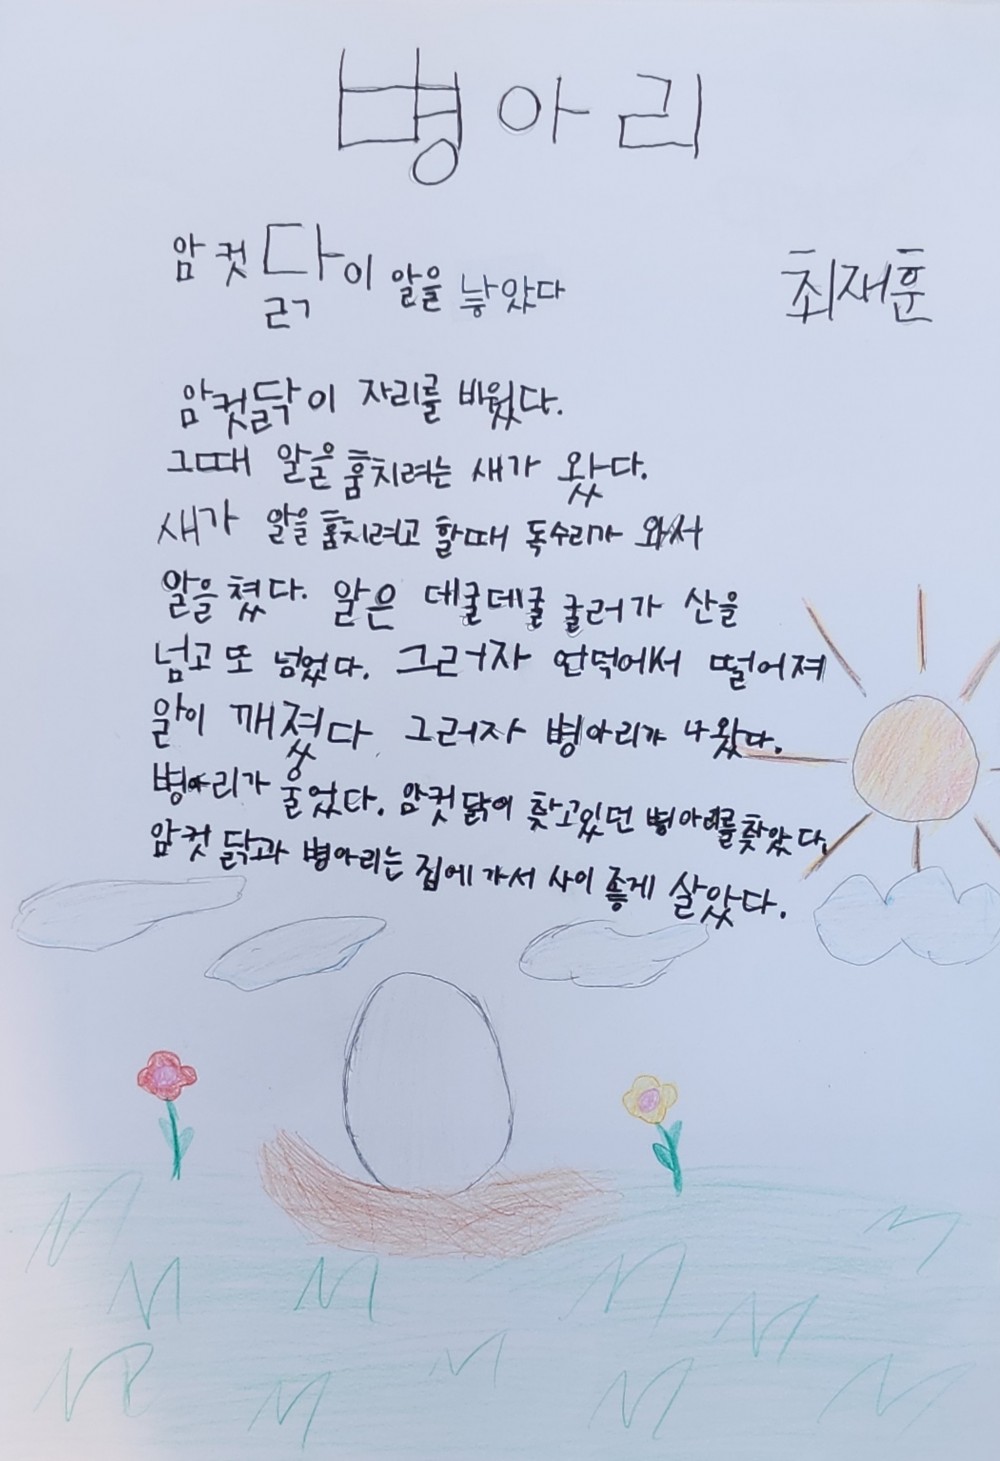 병아리
암컷닭이 알을 낳았다
최재훈
암컷닭이 자리를 비웠다.
그때 알을 훔치려는 새가 왔다.
새가 알을 훔치려고 할때 독수리가 와서
알을 쳤다. 알은 데굴데굴 굴러가 산을
넘고 또 넘었다. 그러자 언덕에서 떨어져
알이 깨졌다 그러자 병아리가 나왔다.
병아리가 울었다. 암컷닭이 찾고있던 병아리를 찾았다.
암컷 닭과 병아리는 집에 가서 사이 좋게 살았다.